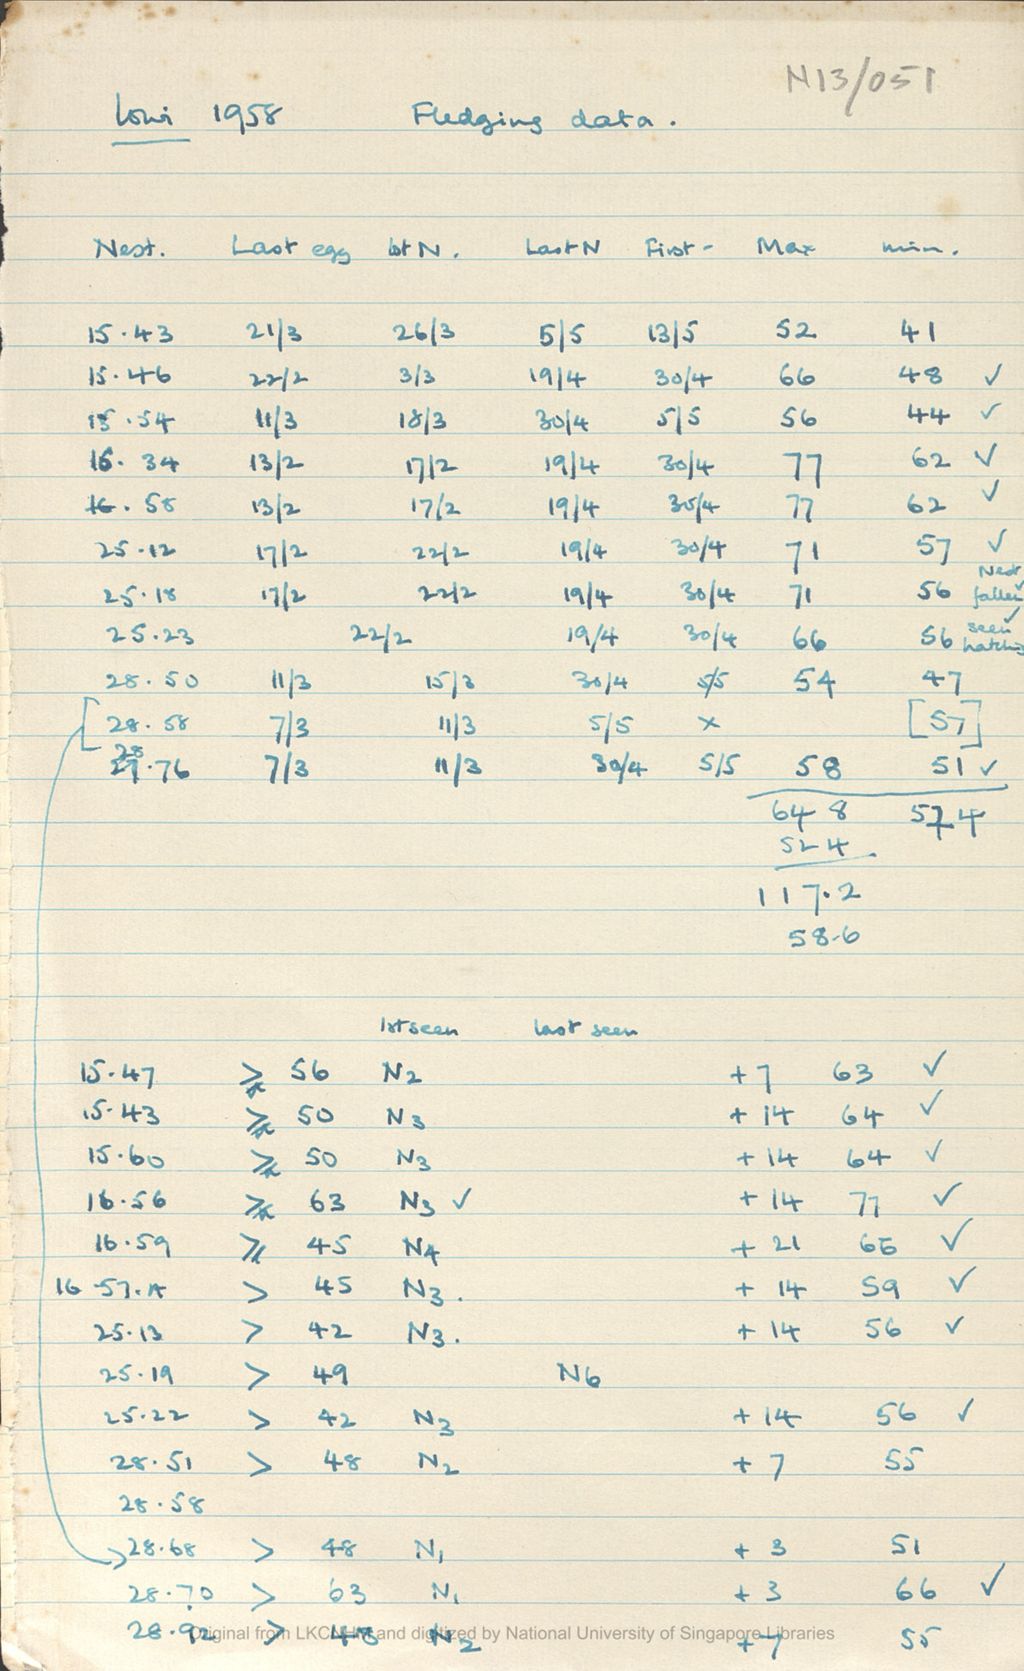 N13/051
lowi 1958 Fledging data.
Nest. Last egg 1st N. Last N First - Max min.
15.43 21/3 26/3 5/5 13/5 52 41
15.46 22/2 3/3 19/4 30/4 66 48 ✓
15.54 11/3 18/3 30/4 5/5 56 44 ✓
16.34 13/2 17/2 19/4 30/4 77 62 ✓
16.58 13/2 17/2 19/4 30/4 77 62 ✓
25.12 17/2 22/2 19/4 30/4 71 57 ✓
25.18 17/2 22/2 19/4 30/4 71 56 Nest fallen ✓
25.23 22/2 19/4 30/4 66 56 seen hatching ✓
28.50 11/3 15/3 30/4 5/5 54 47
[28.58 7/3 11/3 5/5 x [57]
28
29.76 7/3 11/3 30/4 5/5 58 51 ✓
64 8 574
524
117.2
58.6
1st seen last seen
15.47 ⩾ 56 N2 +7 63 ✓
15.43 ⩾ 50 N3 +14 64 ✓
15.60 ⩾ 50 N3 +14 64 ✓
16.56 ⩾ 63 N3 ✓ +14 77 ✓
16.59 ⩾ 45 N4 +21 66 ✓
16 57.A > 45 N3. +14 59 ✓
25.13 > 42 N3. +14 56 ✓
25.19 > 49 N6
25.22 > 42 N3 +14 56 ✓
28.51 > 48 N2 +7 55
28.58
28.68 > 48 N1 +3 51
28.70 > 63 N1 +3 66 ✓
28.92 > 48 N2 +7 55
Original from LKCNHM and digitized by National University of Singapore Libraries